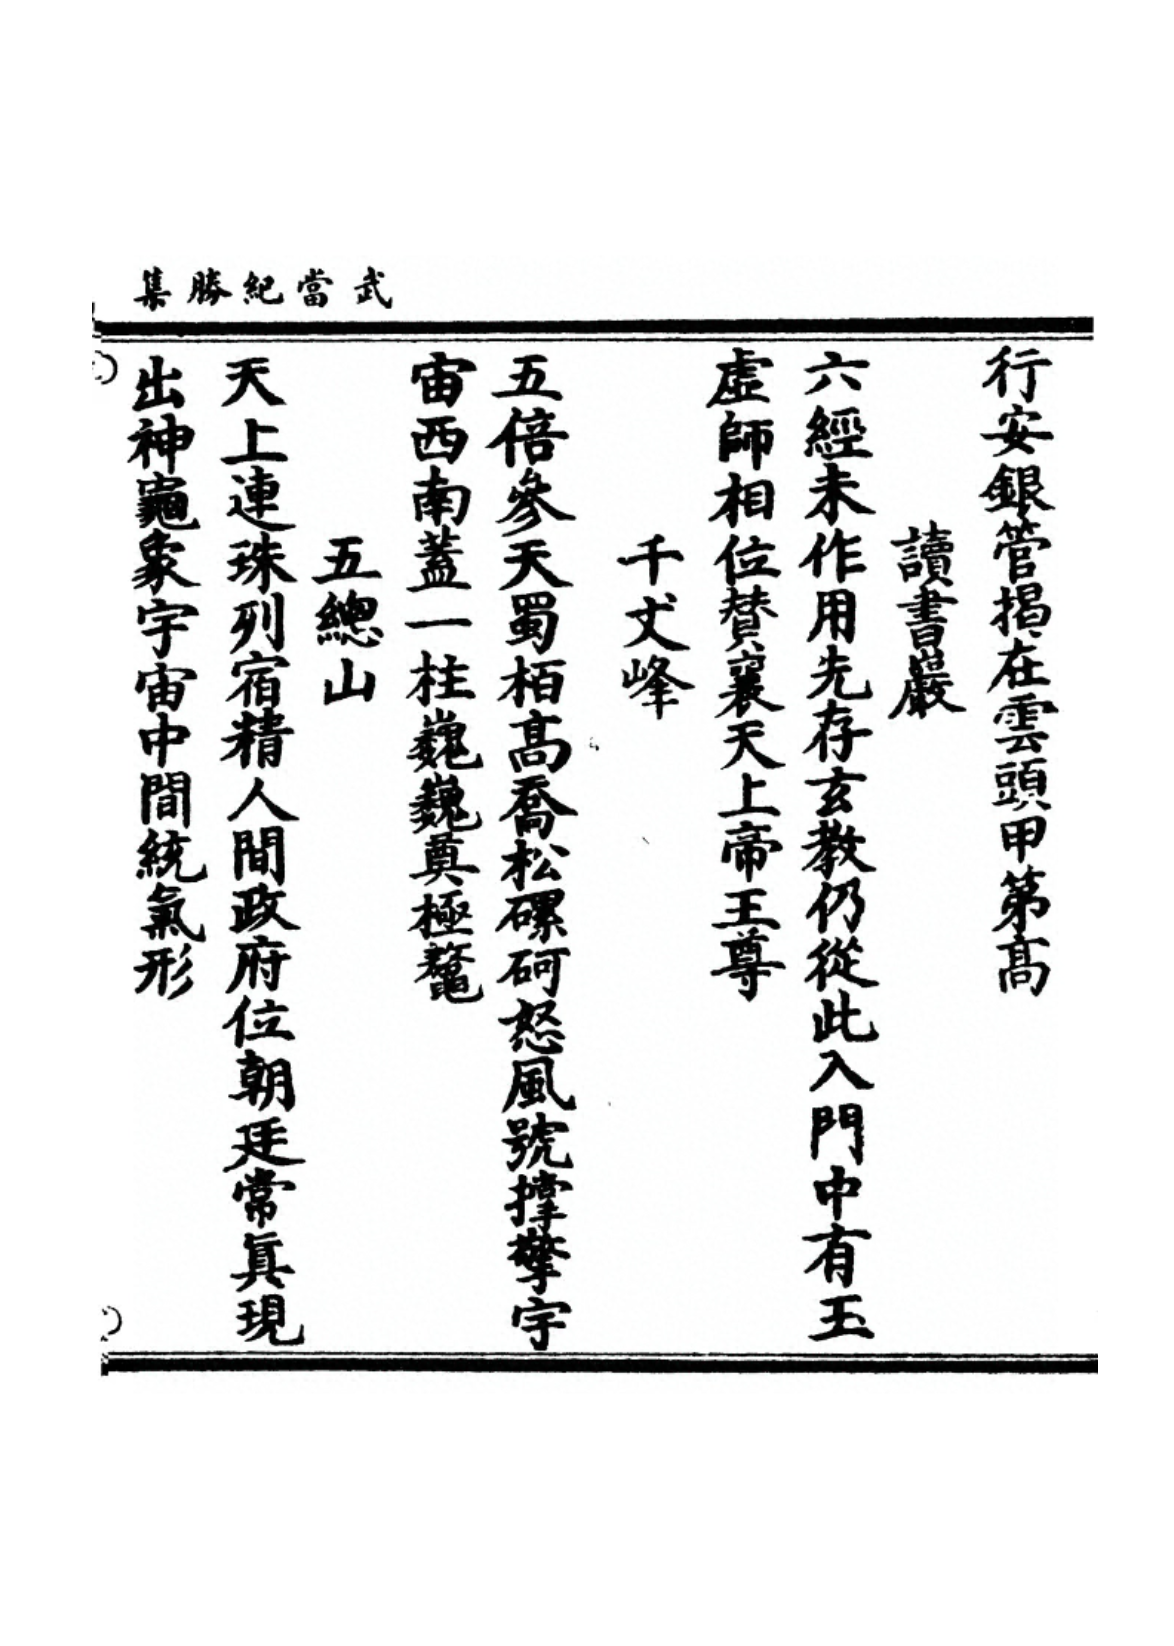 武當紀勝集
行安銀管揭在雲頭甲第高
讀書巖
六經未作用先存玄教仍從此入門中有玉
虛師相位贊襄天上帝王尊
千丈峰
五倍參天蜀栢高喬松磥砢怒風號撐擎宇
宙西南蓋一柱巍巍奠極鼇
五總山
天上連珠列宿精人間政府位朝廷常眞現
出神龜象宇宙中間統氣形